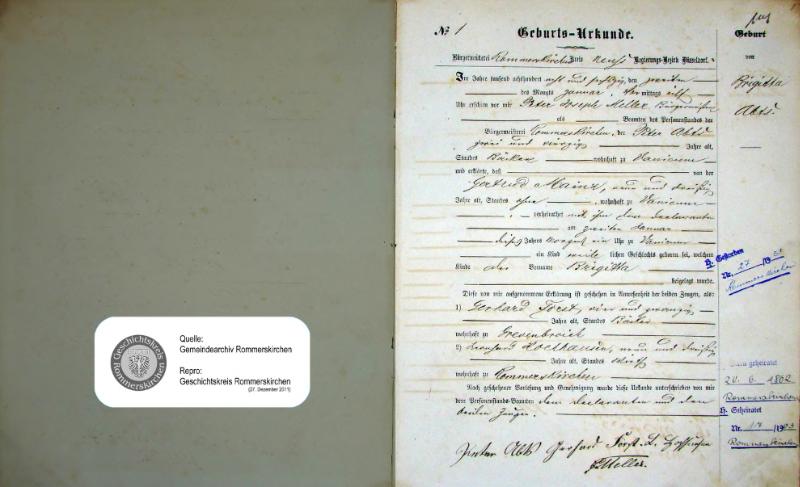 Geschichtskreis
Rommerskirchen
Quelle:
Gemeindearchiv Rommerskirchen
Repro:
Geschichtskreis Rommerskirchen
(27. Dezember 2011)
№ 1
Geburts-Urkunde.
Bürgermeisterei Rommerskirchen Kreis Neuss Regierungs-Bezirk Düsseldorf.
Im Jahre tausend achthundert acht und sechszig, den zweiten
des Monats Januar, Vormittags eilf
Uhr erschien vor mir Peter Joseph Meller Bürgermeister
als Beamten des Personenstandes der
Bürgermeisterei Rommerskirchen, der Peter Abts
zwei und vierzig Jahre alt,
Standes Bäcker wohnhaft zu Vanicum
und erklärte, daß von der
Gertrud Mainz, neun und dreißig
Jahre alt, Standes ohne, wohnhaft zu Vanicum
, verheirathet mit ihm dem Declaranten
am zweiten Januar
dieses Jahres Morgens ein Uhr zu Vanicum
ein Kind weiblichen Geschlechts geboren sei, welchem
Kinde der Vorname Brigitta
beigelegt wurde.
Diese von mir aufgenommene Erklärung ist geschehen in Anwesenheit der beiden Zeugen, als:
1) Gerhard Först, vier und zwanzig
Jahre alt, Standes Bäcker
wohnhaft zu Grevenbroich
2) neun und dreißig
Jahre alt, Standes
wohnhaft zu Rommerskirchen
Nach geschehener Vorlesung und Genehmigung wurde diese Urkunde unterschrieben von mir
dem Personenstands-Beamten, dem Declaranten und den
beiden Zeugen.
Pieter Abts Gerhard Först
Meller.
Geburt
von
Brigitta
Abts.
H: Gestorben
Nr. 27/19
Rommerskirchen
geheiratet
20. 6. 1892
Rommerskirchen
H: Geheiratet
Nr. 17/19
Rommerskirchen